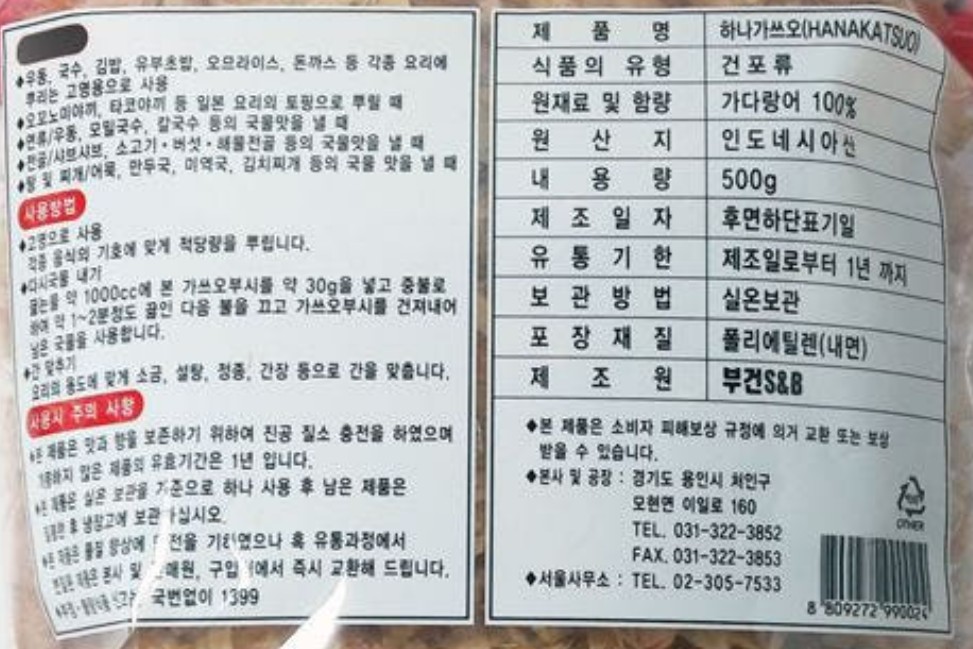 ◆우동, 국수, 김밥, 유부초밥, 오므라이스, 돈까스 등 각종 요리에
뿌리는 고명용으로 사용
◆오꼬노미야끼, 타코야끼 등 일본 요리의 토핑으로 뿌릴 때
◆면류/우동, 모밀국수, 칼국수 등의 국물맛을 낼 때
◆전골/샤브샤브, 소고기·버섯·해물전골 등의 국물맛을 낼 때
◆탕 및 찌개/어묵, 만두국, 미역국, 김치찌개 등의 국물 맛을 낼 때
사용방법
◆고명으로 사용
각종 음식의 기호에 맞게 적당량을 뿌립니다.
◆다시국물 내기
끓는물 약 1000cc에 본 가쓰오부시를 약 30g을 넣고 중불로
하여 약 1~2분정도 끓인 다음 불을 끄고 가쓰오부시를 건져내어
남은 국물을 사용합니다.
◆간 맞추기
요리의 용도에 맞게 소금, 설탕, 정종, 간장 등으로 간을 맞춥니다.
사용시 주의 사항
◆본 제품은 맛과 향을 보존하기 위하여 진공 질소 충전을 하였으며
않은 제품의 유효기간은 1년 입니다.
◆본 제품은 실온 보관을 기준으로 하나 사용 후 남은 제품은
후 냉장고에 보관하십시오.
◆본 제품은 품질 향상에 만전을 기하였으나 혹 유통과정에서
제품은 본사 및 판매원, 구입처에서 즉시 교환해 드립니다.
국번없이 1399
제 품 명 하나가쓰오(HANAKATSUO)
식품의 유형 건포류
원재료 및 함량 가다랑어 100%
원 산 지 인도네시아산
내 용 량 500g
제 조 일 자 후면하단표기일
유 통 기 한 제조일로부터 1년 까지
보 관 방 법 실온보관
포 장 재 질 폴리에틸렌(내면)
제 조 원 부건S&B
◆본 제품은 소비자 피해보상 규정에 의거 교환 또는 보상
받을 수 있습니다.
◆본사 및 공장 : 경기도 용인시 처인구
모현면 이일로 160
TEL. 031-322-3852
FAX. 031-322-3853
◆서울사무소 : TEL. 02-305-7533
OTHER
8 809272 990024